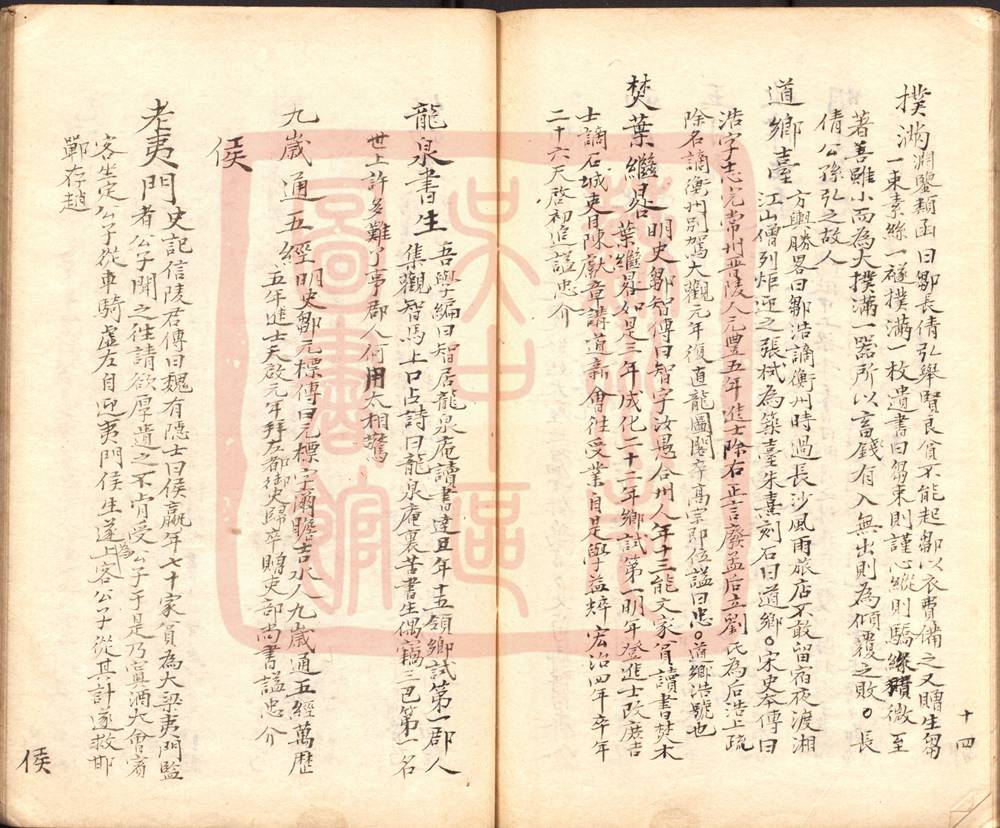 撲滿 淵鑒類函曰鄒長倩弘舉賢良貧不能起鄒以衣費備之又贈生芻
一束素絲一襚撲滿一枚遺書曰芻束則謹心縱則驕絲積微至
著善雖小而為大撲滿一器所以畜錢有入無出則為傾覆之敗○長
倩公孫弘之故人
道鄉臺 方輿勝畧曰鄒浩謫衡州時過長沙風雨旅店不敢留宿夜渡湘
江山僧列炬迎之張栻為築臺朱熹刻石曰道鄉○宋史本傳曰
浩字志完常州晉陵人元豐五年進士除右正言廢孟后立劉氏為后浩上疏
除名謫衡州別駕大觀元年復直龍圖閣卒高宗即位謚曰忠○道鄉浩號也
焚葉繼晷 明史鄒智傳曰智字汝愚合州人年十三能文家貧讀書焚木
葉繼晷如是三年成化二十二年鄉試第一明年登進士改庶吉
士謫石城吏目陳獻章講道新會往受業自是學益粹宏治四年卒年
二十六天啓初追謚忠介
龍泉書生 吾學編曰智居龍泉庵讀書達旦年十五領鄉試第一郡人
集觀智馬上口占詩曰龍泉庵裏苦書生偶竊三巴第一名
世上許多難了事郡人何用太相驚
九歲通五經 明史鄒元標傳曰元標字爾瞻吉水人九歲通五經萬歷
五年進士天啟元年拜左都御史歸卒贈吏部尚書謚忠介
侯
老夷門 史記信陵君傳曰魏有隱士曰侯嬴年七十家貧為大梁夷門監
者公子聞之往請欲厚遺之不肯受公子于是乃置酒大會賓
客坐定公子從車騎虛左自迎夷門侯生遂為上客公子從其計遂救邯
鄲存趙
十四
侯